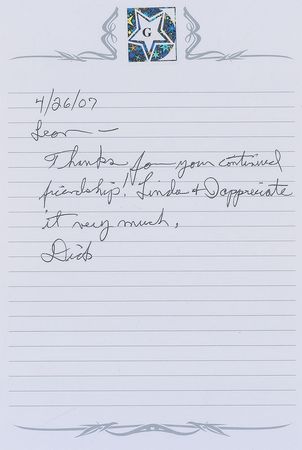 G
4/26/07
Leon —
Thanks for your continued
friendship! Linda & I appreciate
it very much,
Dick